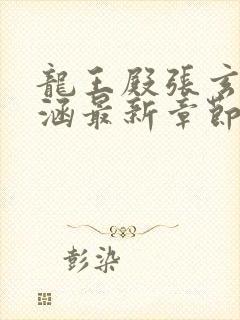 龍王殿張玄
涵最新章節
彭染